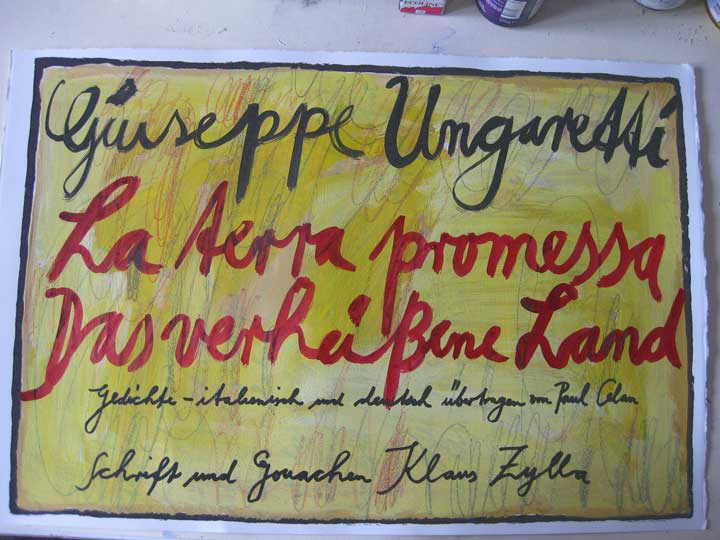 ECOLINE
Giuseppe Ungaretti
La terra promessa
Das verheißene Land
Gedichte - italienisch und deutsch übertragen von Paul Celan
Schrift und Gouachen Klaus Zylla